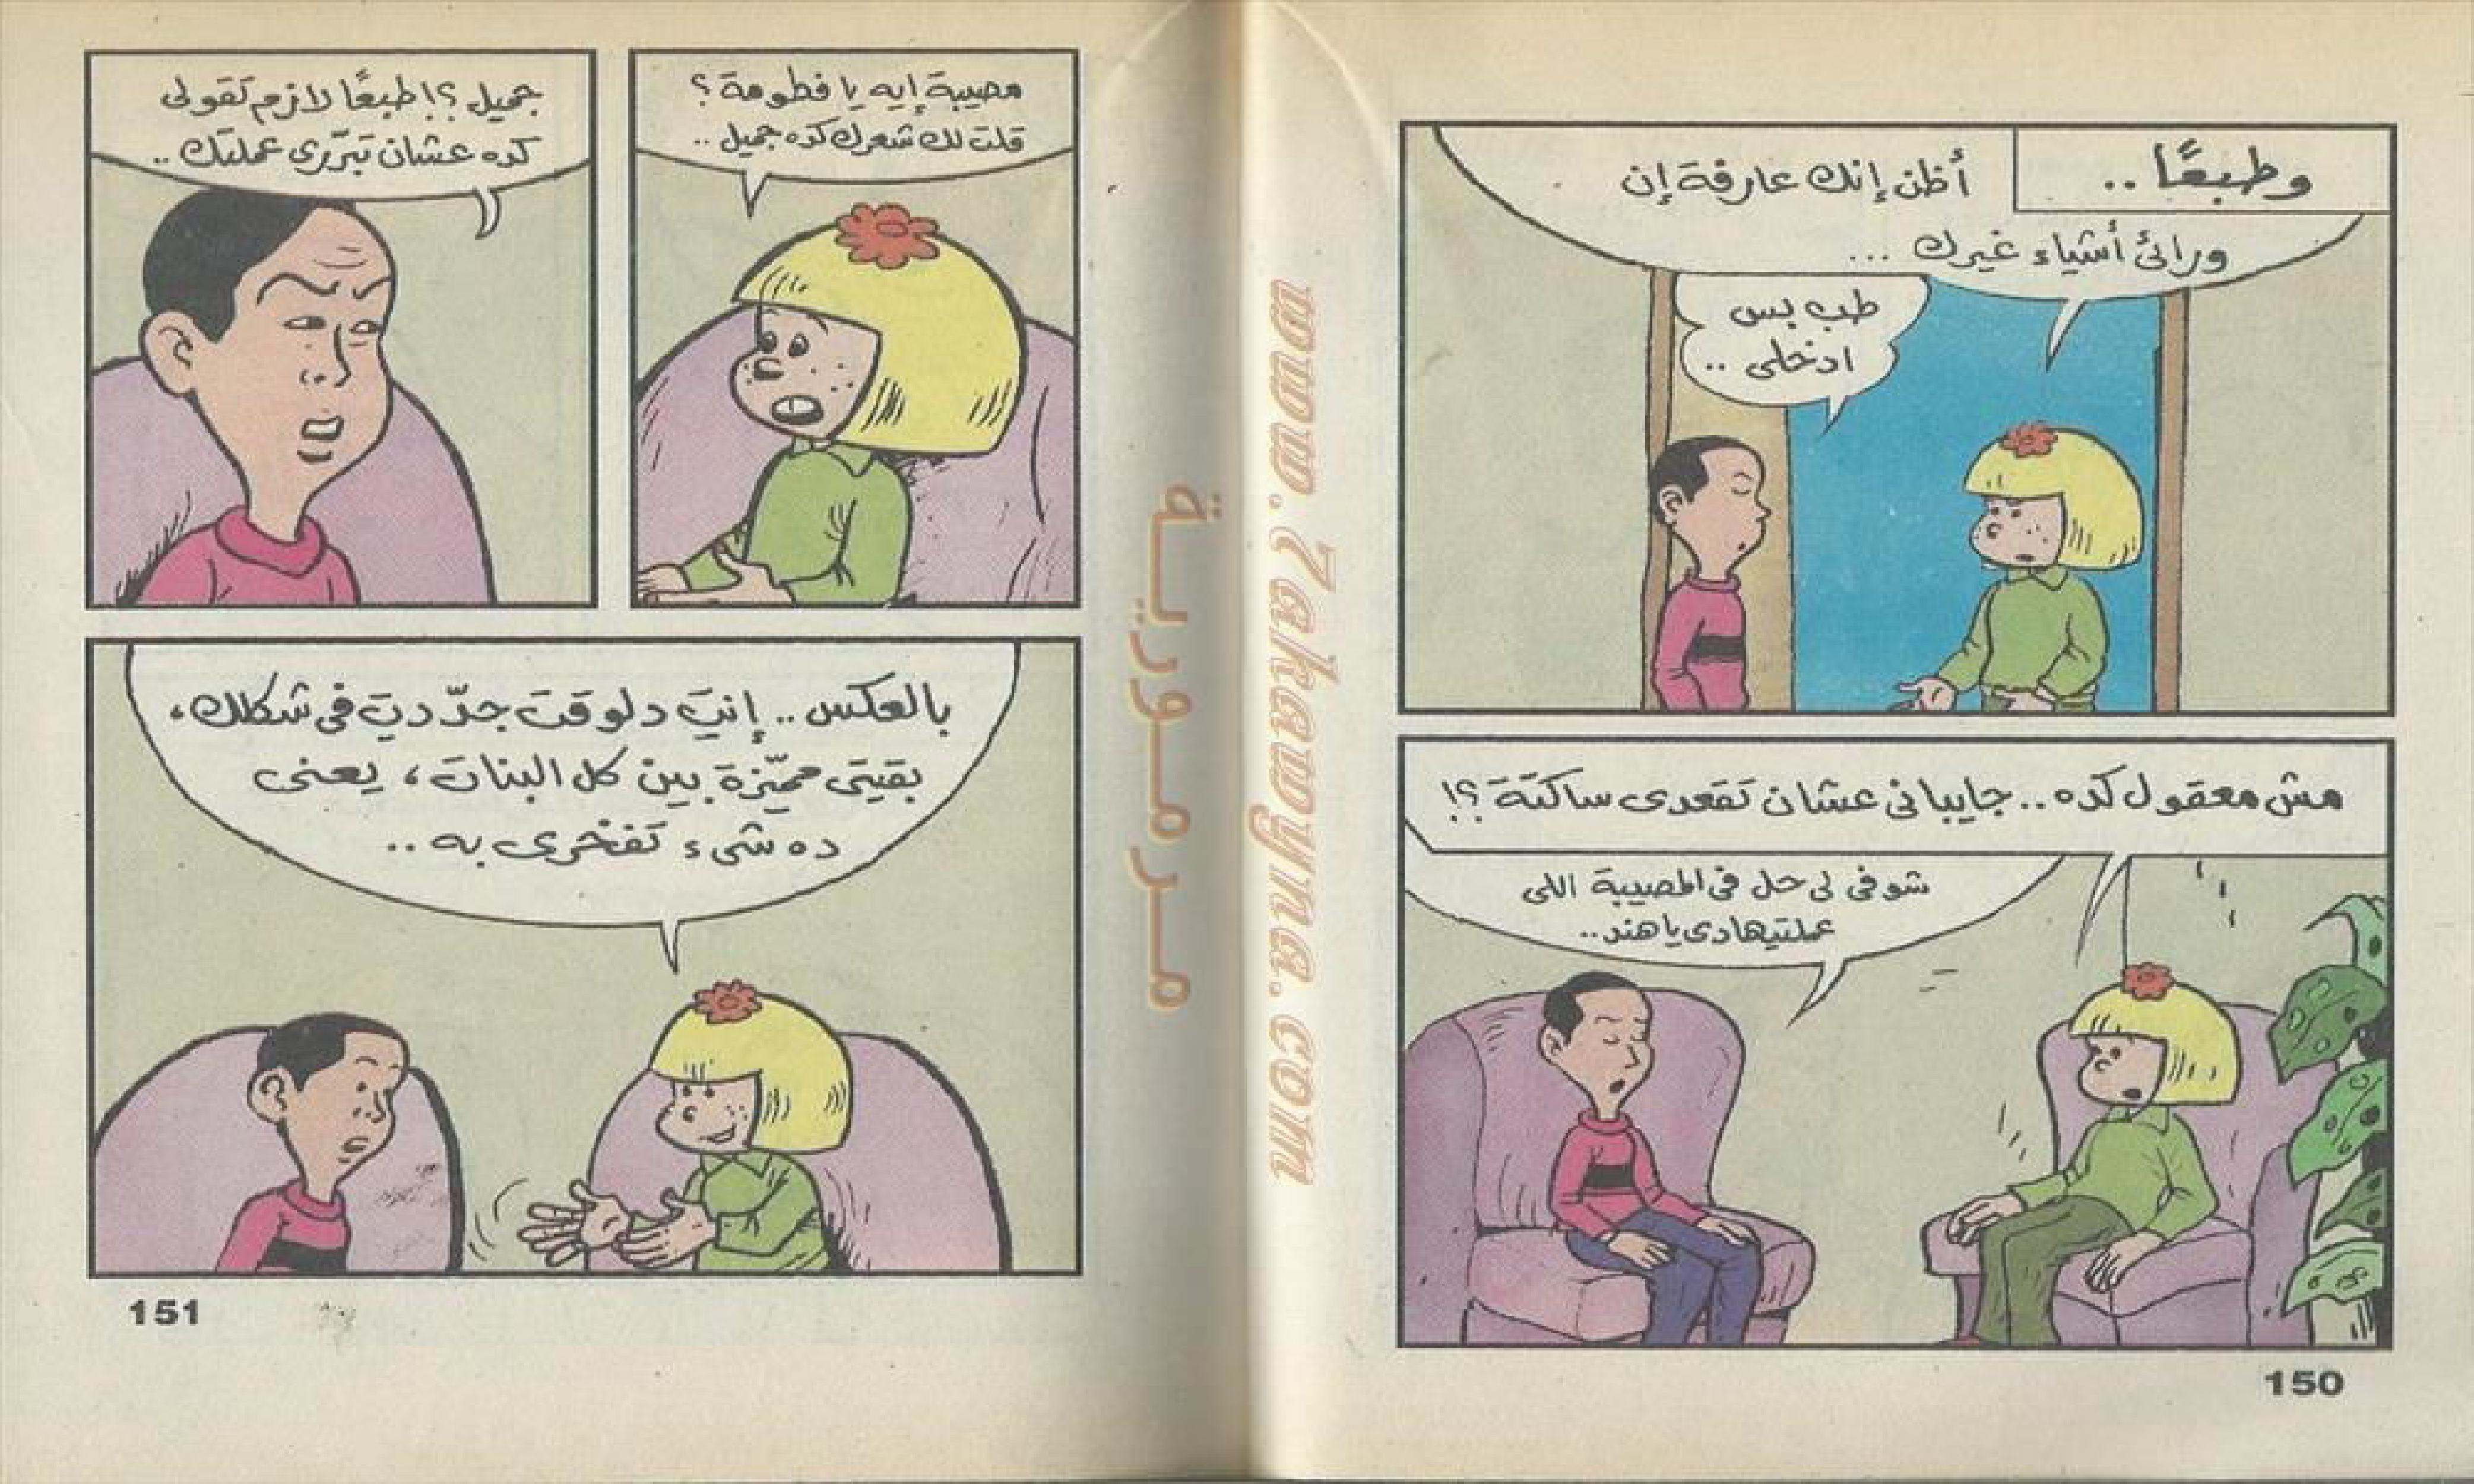 وطبعًا..
أظن إنك عارفة إن
ورائى أشياء غيرك ...
طب بس
ادخلى ..
مش معقول كده.. جايبانى عشان تقعدى ساكتة؟!
شوفى لى حل فى المصيبة اللى
عملتيها دى يا هند..
150
مصيبة إيه يا فطومة؟
قلت لك شعرك كده جميل ..
جميل؟! طبعًا لازم تقولى
كده عشان تبرّرى عملتك ..
بالعكس .. إنتِ دلوقت جدّدتِ فى شكلك،
بقيتى مميّزة بين كل البنات، يعنى
ده شىء تفخرى به ..
151
مرمورية
www.7akawyna.com